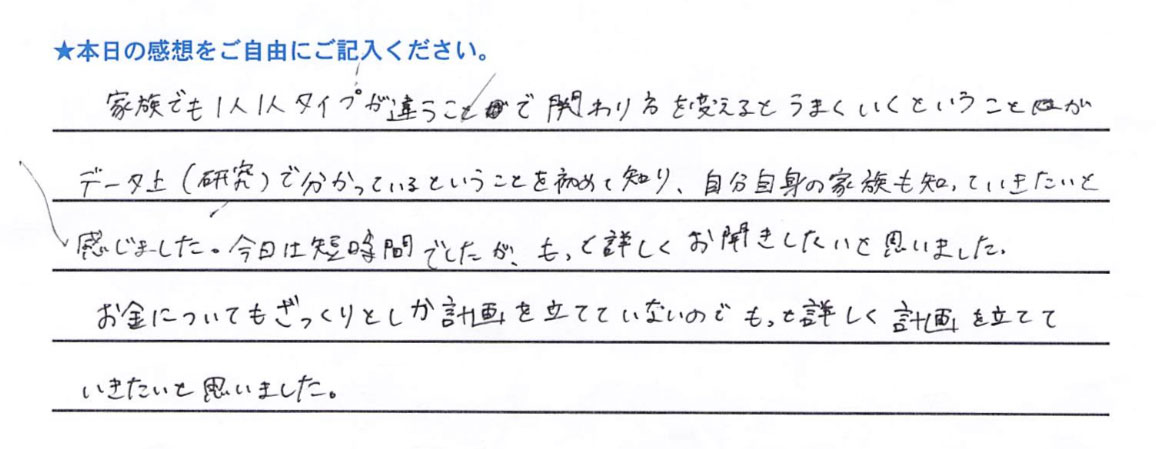 ★本日の感想をご自由にご記入ください。
家族でも1人1人タイプが違うことで関わり方を変えるとうまくいくということが
データ上(研究)で分かっているということを初めて知り、自分自身の家族も知っていきたいと
感じました。今日は短時間でしたが、もっと詳しくお聞きしたいと思いました。
お金についてもざっくりとしか計画を立てていないのでもっと詳しく計画を立てて
いきたいと思いました。